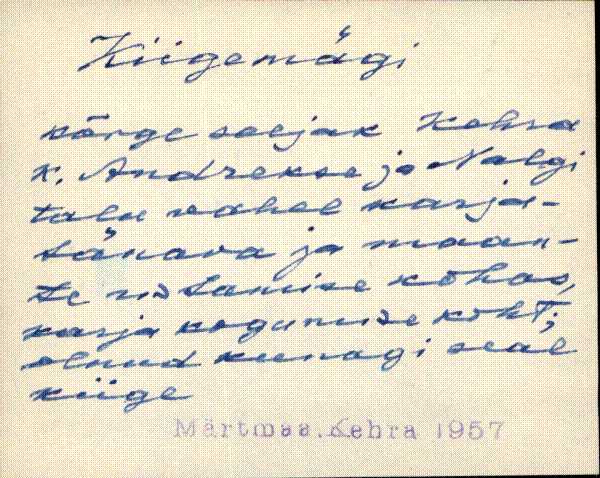 Kiigemägi
kõrge seljak Kehra
k. Andrekse ja Nalgi
talu vahel karja-
tänava ja maan-
te ristumise kohas,
karja kogumise koht;
olnud keenagi seal
kiige
Märtmaa. Kehra 1957